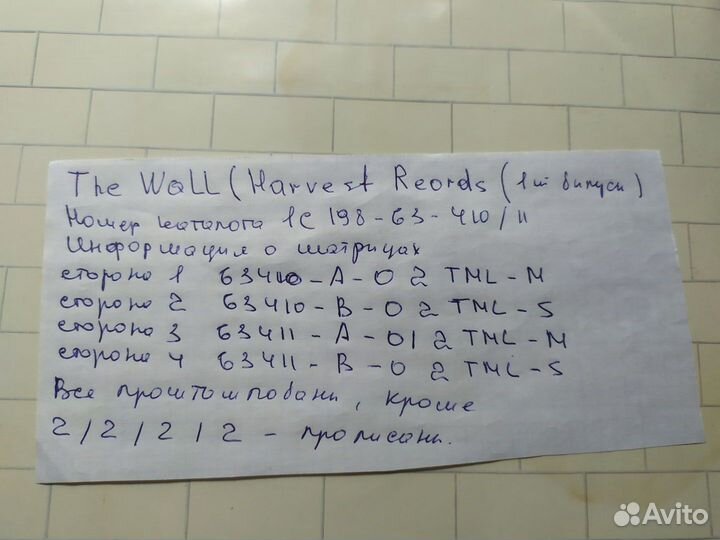 The WaLL (Harvest Reords (1ый випуск)
Номер каталога 1C 198-63-410/11
Информация о матрицах
сторона 1 63410-A-0 2 TML-M
сторона 2 63410-B-0 2 TML-S
сторона 3 63411-A-01 2 TML-M
сторона 4 63411-B-0 2 TML-S
Все проштампованы, кроме
2/2/2/2 - прописаны.
Avito